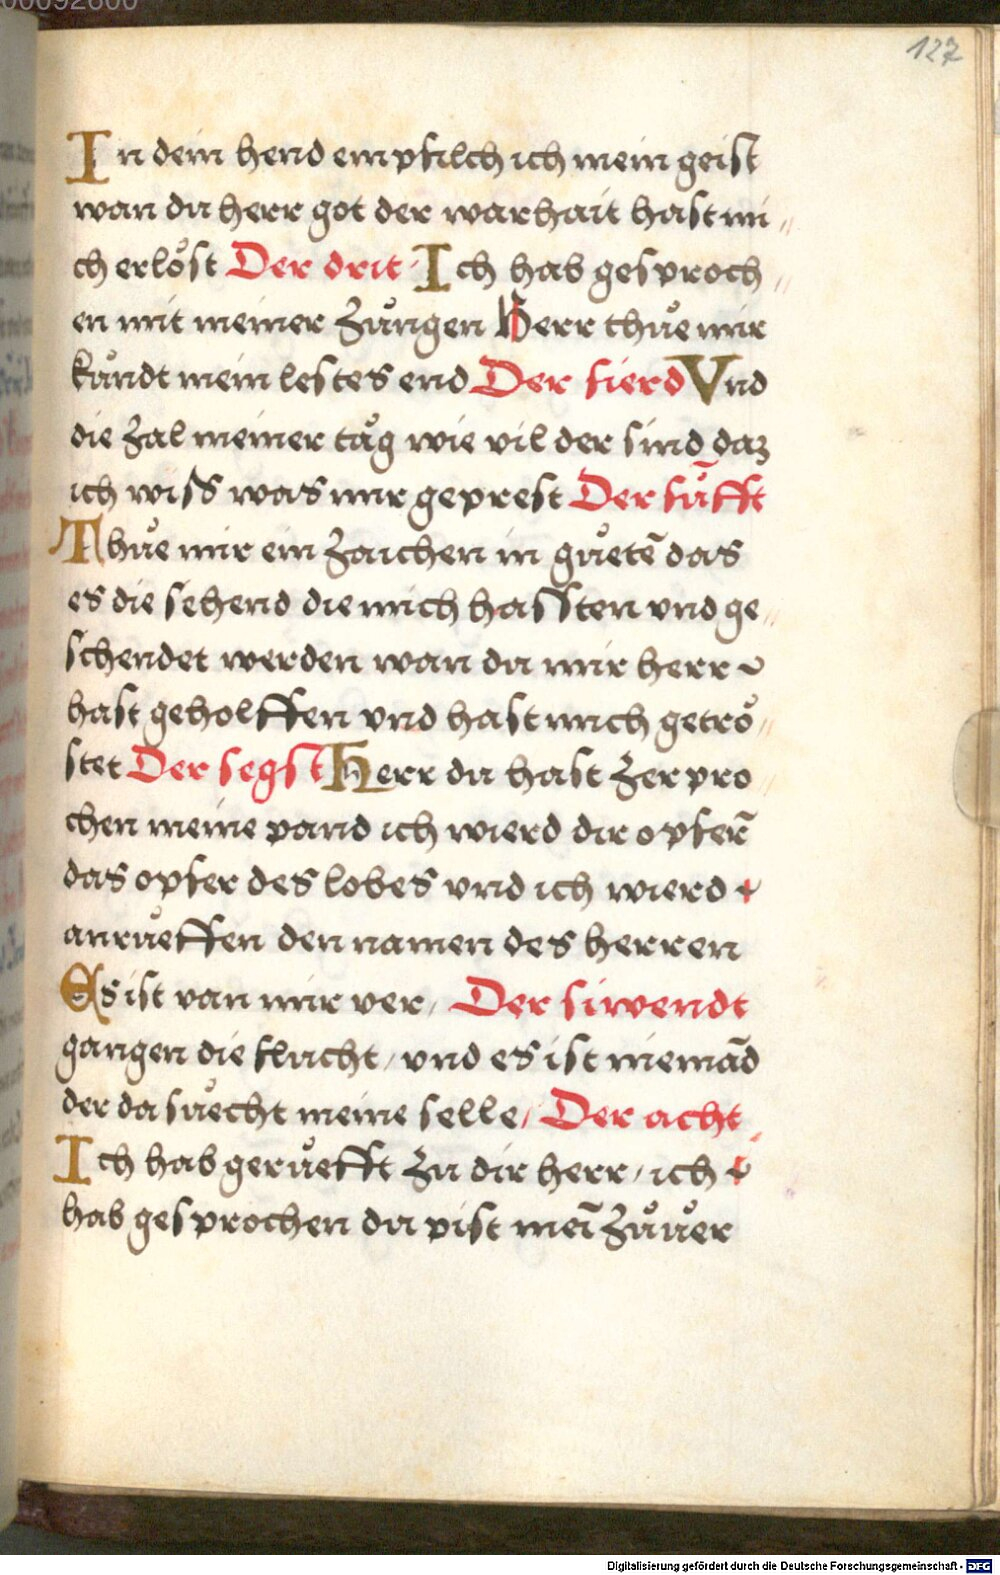 00092600
127
In dein hend empfilch ich mein geist
wan du herr got der warhait hast mi„
ch erlöst Der drit Ich hab gesproch„
en mit meiner zůngen Herr thůe mir
kůndt mein lestes end Der fierd Vnd
die zal meiner tåg wie vil der sind daz
ich wiss was mir geprest Der fůfft
Thůe mir ein zaichen in gůetē das
es die sehend die mich hassten vnd ge„
schendet werden wan du mir herr
hast geholffen vnd hast mich getrö„
stet Der segst Herr du hast zerpro
chen meine pand ich wierd dir opferñ
das opfer des lobes vnd ich wierd
anrůeffen den namen des herren
Es ist van mir ver, Der sivendt
gangen die flucht, vnd es ist niemād
der da sůecht meine selle, Der acht
Ich hab gerůefft zu dir herr, ich
hab gesprochen du pist meī zůuer
Digitalisierung gefördert durch die Deutsche Forschungsgemeinschaft - DFG